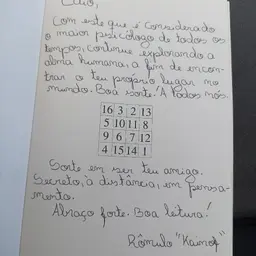 Caio,
Com este que é considerado
o maior psicólogo de todos os
tempos, continue explorando a
alma humana, a fim de encon-
trar o teu próprio lugar no
mundo. Boa sorte! A todos nós.
16 3 2 13
5 10 11 8
9 6 7 12
4 15 14 1
Sorte em ser teu amigo.
Secreto, à distância, em pensa-
mento.
Abraço forte. Boa leitura!
Rômulo